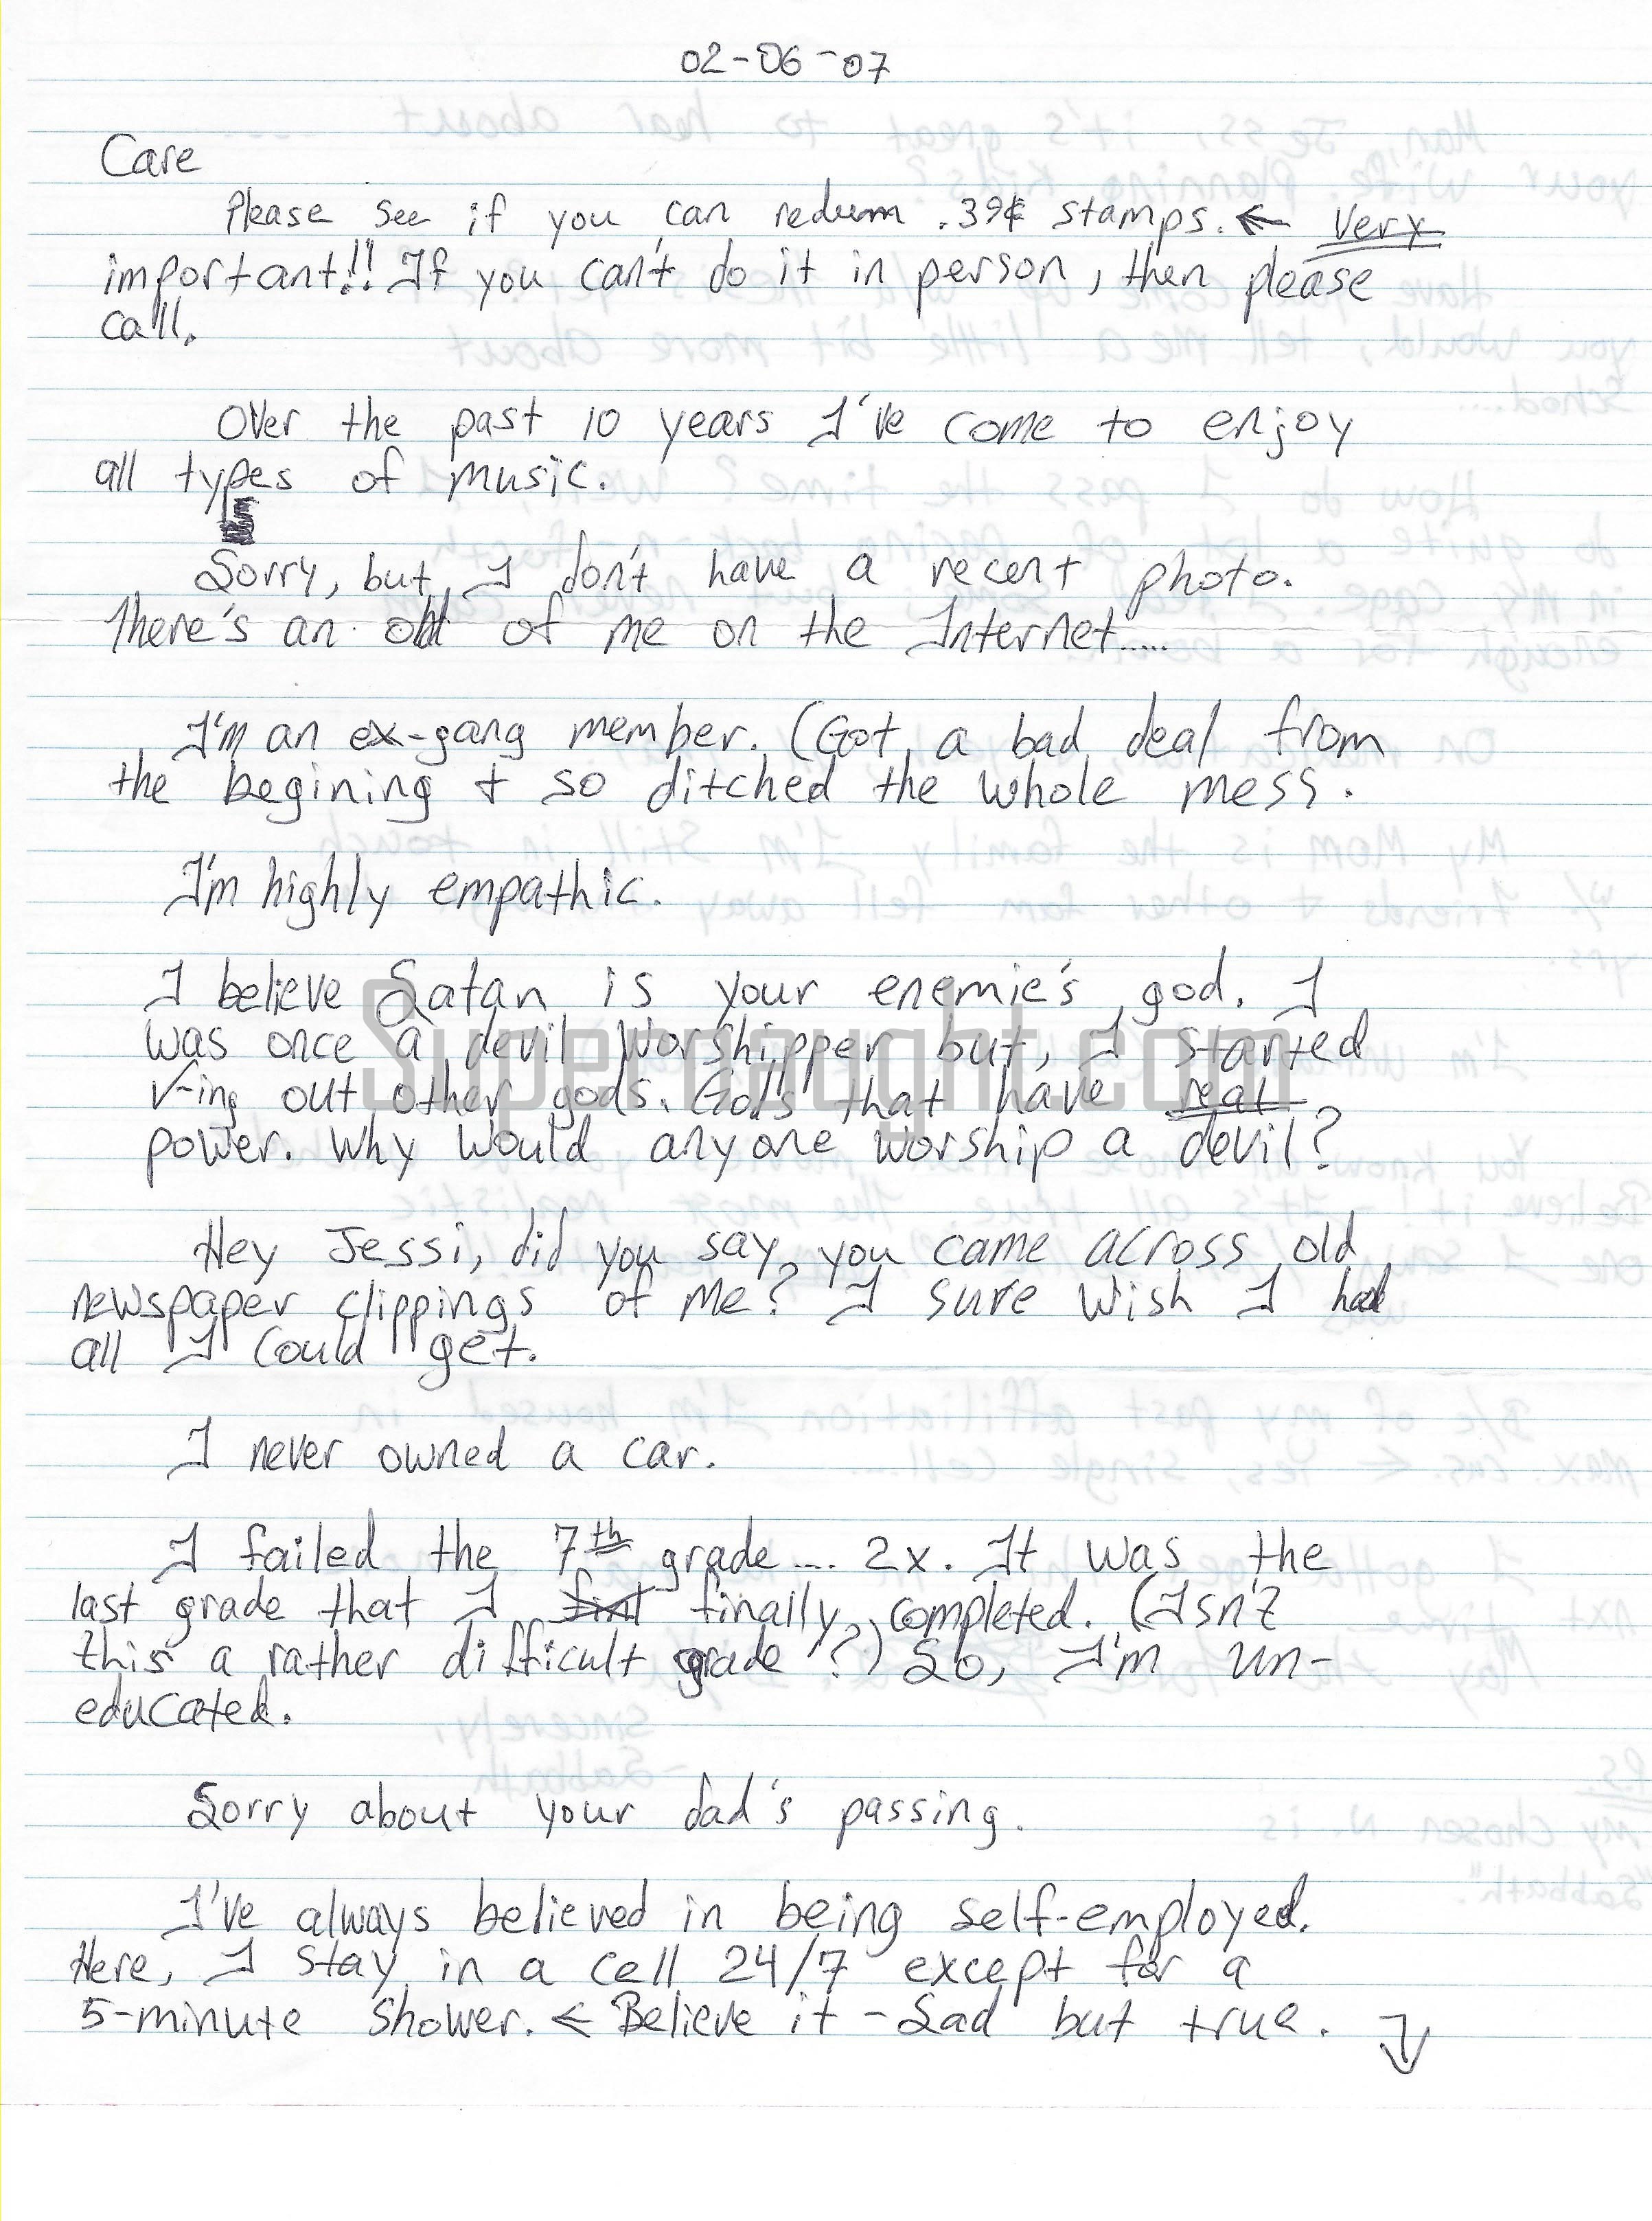 02-06-07
Care
Please see if you can redeem .39¢ stamps. ← Very
important!! If you can't do it in person, then please
call.
Over the past 10 years I've come to enjoy
all types of music.
Sorry, but I don't have a recent photo.
There's an old of me on the Internet.....
I'm an ex-gang member. (Got a bad deal from
the begining & so ditched the whole mess.
I'm highly empathic.
I believe Satan is your enemie's god. I
was once a devil worshipper but, I started
√-ing out other gods. Gods that have real
power. Why would anyone worship a devil?
Supernaught.com
Hey Jessi, did you say you came across old
newspaper clippings of me? I sure wish I had
all I could get.
I never owned a car.
I failed the 7th grade.... 2x. It was the
last grade that I finally completed. (Isn't
this a rather difficult grade?) So, I'm un-
educated.
Sorry about your dad's passing.
I've always believed in being self-employed.
Here, I stay in a cell 24/7 except for a
5-minute shower. ← Believe it - Sad but true. ↓